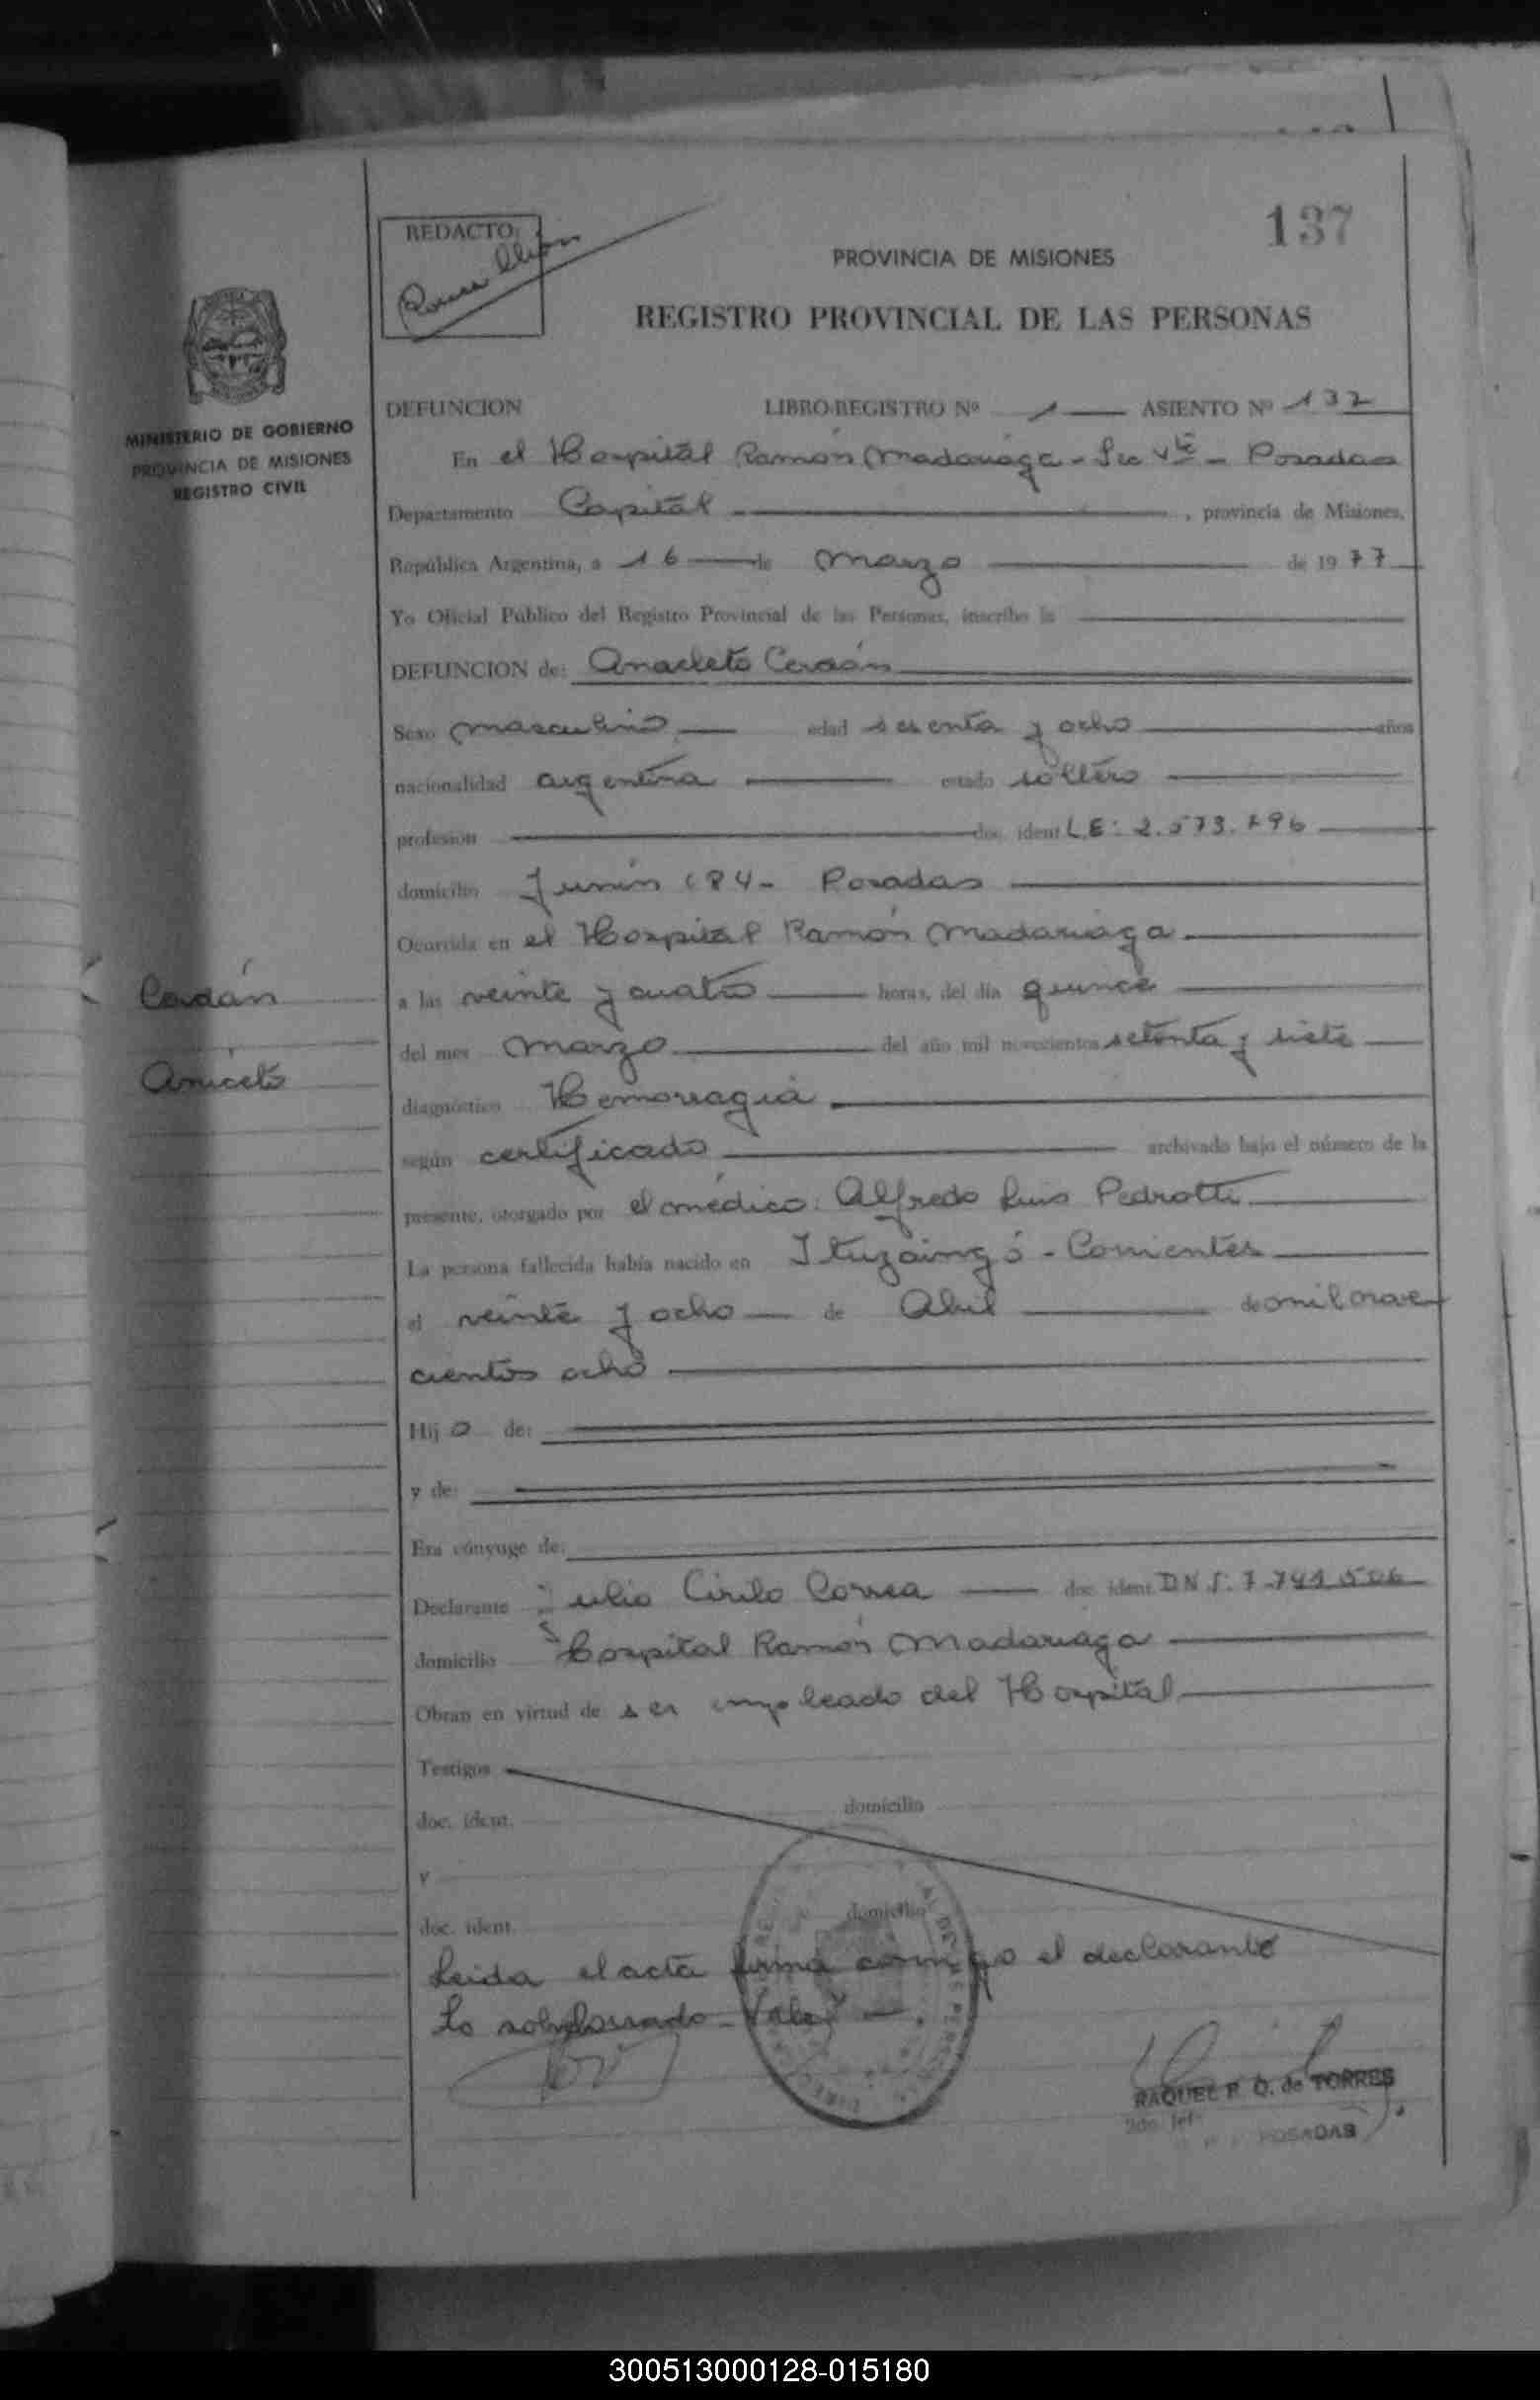 137
REDACTO:
PROVINCIA DE MISIONES
REGISTRO PROVINCIAL DE LAS PERSONAS
MINISTERIO DE GOBIERNO
PROVINCIA DE MISIONES
REGISTRO CIVIL
DEFUNCION LIBRO-REGISTRO Nº 1 ASIENTO Nº 137
En el Hospital Ramón Madariaga - Sec Vta - Posadas
Departamento Capital, provincia de Misiones,
República Argentina, a 16 de marzo de 1977
Yo Oficial Público del Registro Provincial de las Personas, inscribo la
DEFUNCION de: Anacleto Cerdán
Sexo masculino edad sesenta y ocho años
nacionalidad argentina estado soltero
profesión doc. ident L.E: 2.573.796
domicilio Junín 184 - Posadas
Ocurrida en el Hospital Ramón Madariaga
Cerdán
a las veinte y cuatro horas, del día quince
del mes marzo del año mil novecientos setenta y siete
Aniceto
diagnóstico Hemorragia
según certificado archivado bajo el número de la
presente, otorgado por el médico: Alfredo Luis Pedrotti
La persona fallecida había nacido en Ituzaingó - Corrientes
el veinte y ocho de Abril de mil nove
cientos ocho
Hijo de:
y de:
Era cónyuge de:
Declarante Julio Cirilo Correa doc. ident D.N.I. 7.741.506
domicilio Hospital Ramón Madariaga
Obran en virtud de ser empleado del Hospital
Testigos
doc. ident. domicilio
y
doc. ident. domicilio
Leida el acta firma conmigo el declarante
Lo sobreborrado - Vale
RAQUEL P. Q. de TORRES
2do. Jef
POSADAS
300513000128-015180